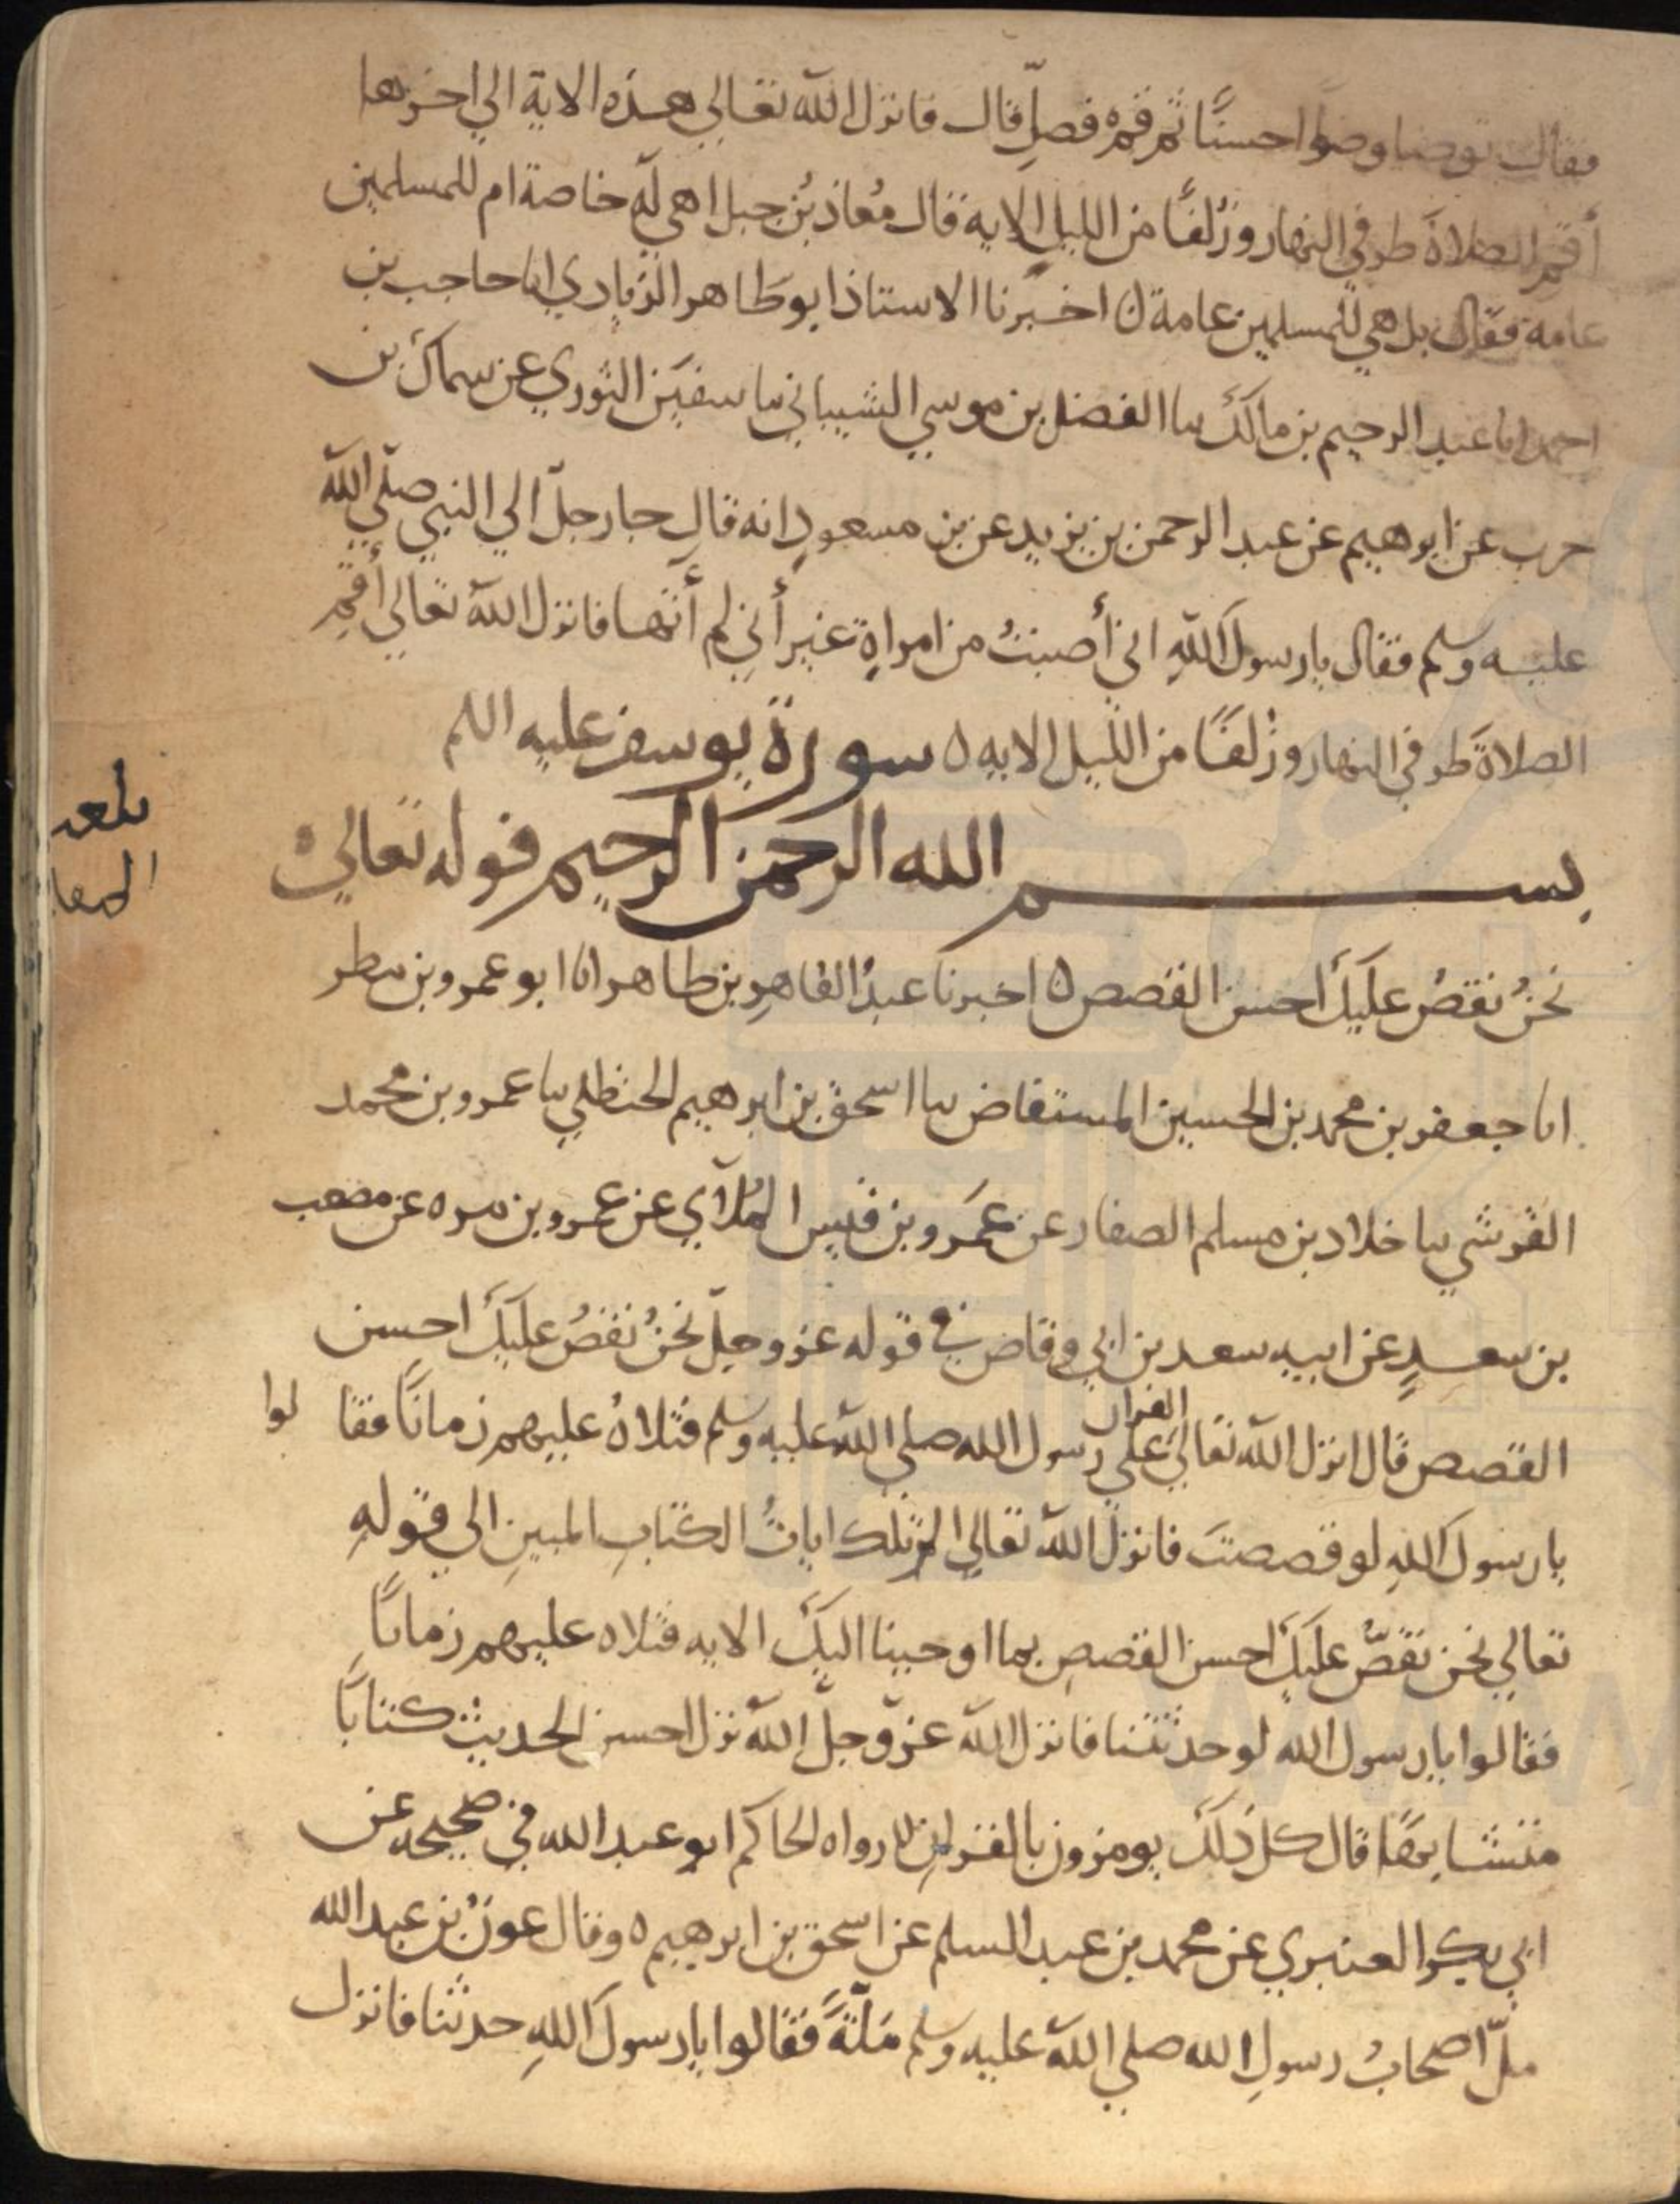 فقال توضا وضوا حسنًا ثم قم فصلِّ قال فانزل الله تعالي هذه الاية الي اخرها
أقمِ الصلاةَ طرفي النهار وزُلفًا من الليل الايه قال مُعاذ بنُ جبل اهي له خاصة ام للمسلمين
عامة فقال بل هي للمسلمين عامة ٥ اخبرنا الاستاذ ابو طاهر الزيادي انا حاجب بن
احمد انا عبد الرحيم بن مالك سا الفضل بن موسي الشيباني سا سفين الثوري عن سماك بن
حرب عن ابرهيم عن عبد الرحمن بن يزيد عن بن مسعودٍ انه قال جا رجلٌ الي النبي صلي الله
عليه وسلم فقال يا رسول اللهِ اني أصبتُ من امراةٍ غير أني لم أتها فانزل الله تعالي أقمِ
الصلاةَ طرفي النهار وزُلفًا من الليل الايه ٥ سورة يوسف عليه السلم
بسم الله الرحمن الرحيم قوله تعالي
نحنُ نقصُ عليكَ احسن القصص ٥ اخبرنا عبدُ القاهرِ بن طاهر انا ابو عمرو بن مطر
انا جعفر بن محمد بن الحسين المستفاض سا اسحق بن ابرهيم الحنظلي سا عمرو بن محمد
القرشي سا خلاد بن مسلم الصفار عن عَمرو بن قيس المُلآي عن عمرو بن مره عن مصعب
بن سعدٍ عن ابيه سعد بن ابي وقاص في قوله عز وجلّ نحنُ نقصُ عليكَ احسن
القصص قال انزل الله تعالي القران علي رسول الله صلي الله عليه وسلم فتلاهُ عليهم زمانًا فقالوا
يا رسول اللهِ لو قصصتَ فانزل الله تعالي الر تلك اياتُ الكتابِ المبينِ الي قولهِ
تعالي نحن نقصُّ عليكَ احسن القصصِ بما اوحينا اليكَ الايه فتلاه عليهم زمانًا
فقالوا يا رسول الله لو حدثتنا فانزل الله عزّ وجلّ الله نزل احسن الحديث كتابًا
متشابهًا قال كل ذلكَ يومرون بالقران ٥ رواه الحاكم ابو عبد الله في صحيحه عن
ابي بكر العنبري عن محمد بن عبد السلم عن اسحق بن ابرهيم ٥ وقال عونُ بن عبد الله
ملّ اصحابُ رسولِ الله صلي الله عليه وسلم مَلّةً فقالوا يا رسول اللهِ حدثنا فانزل